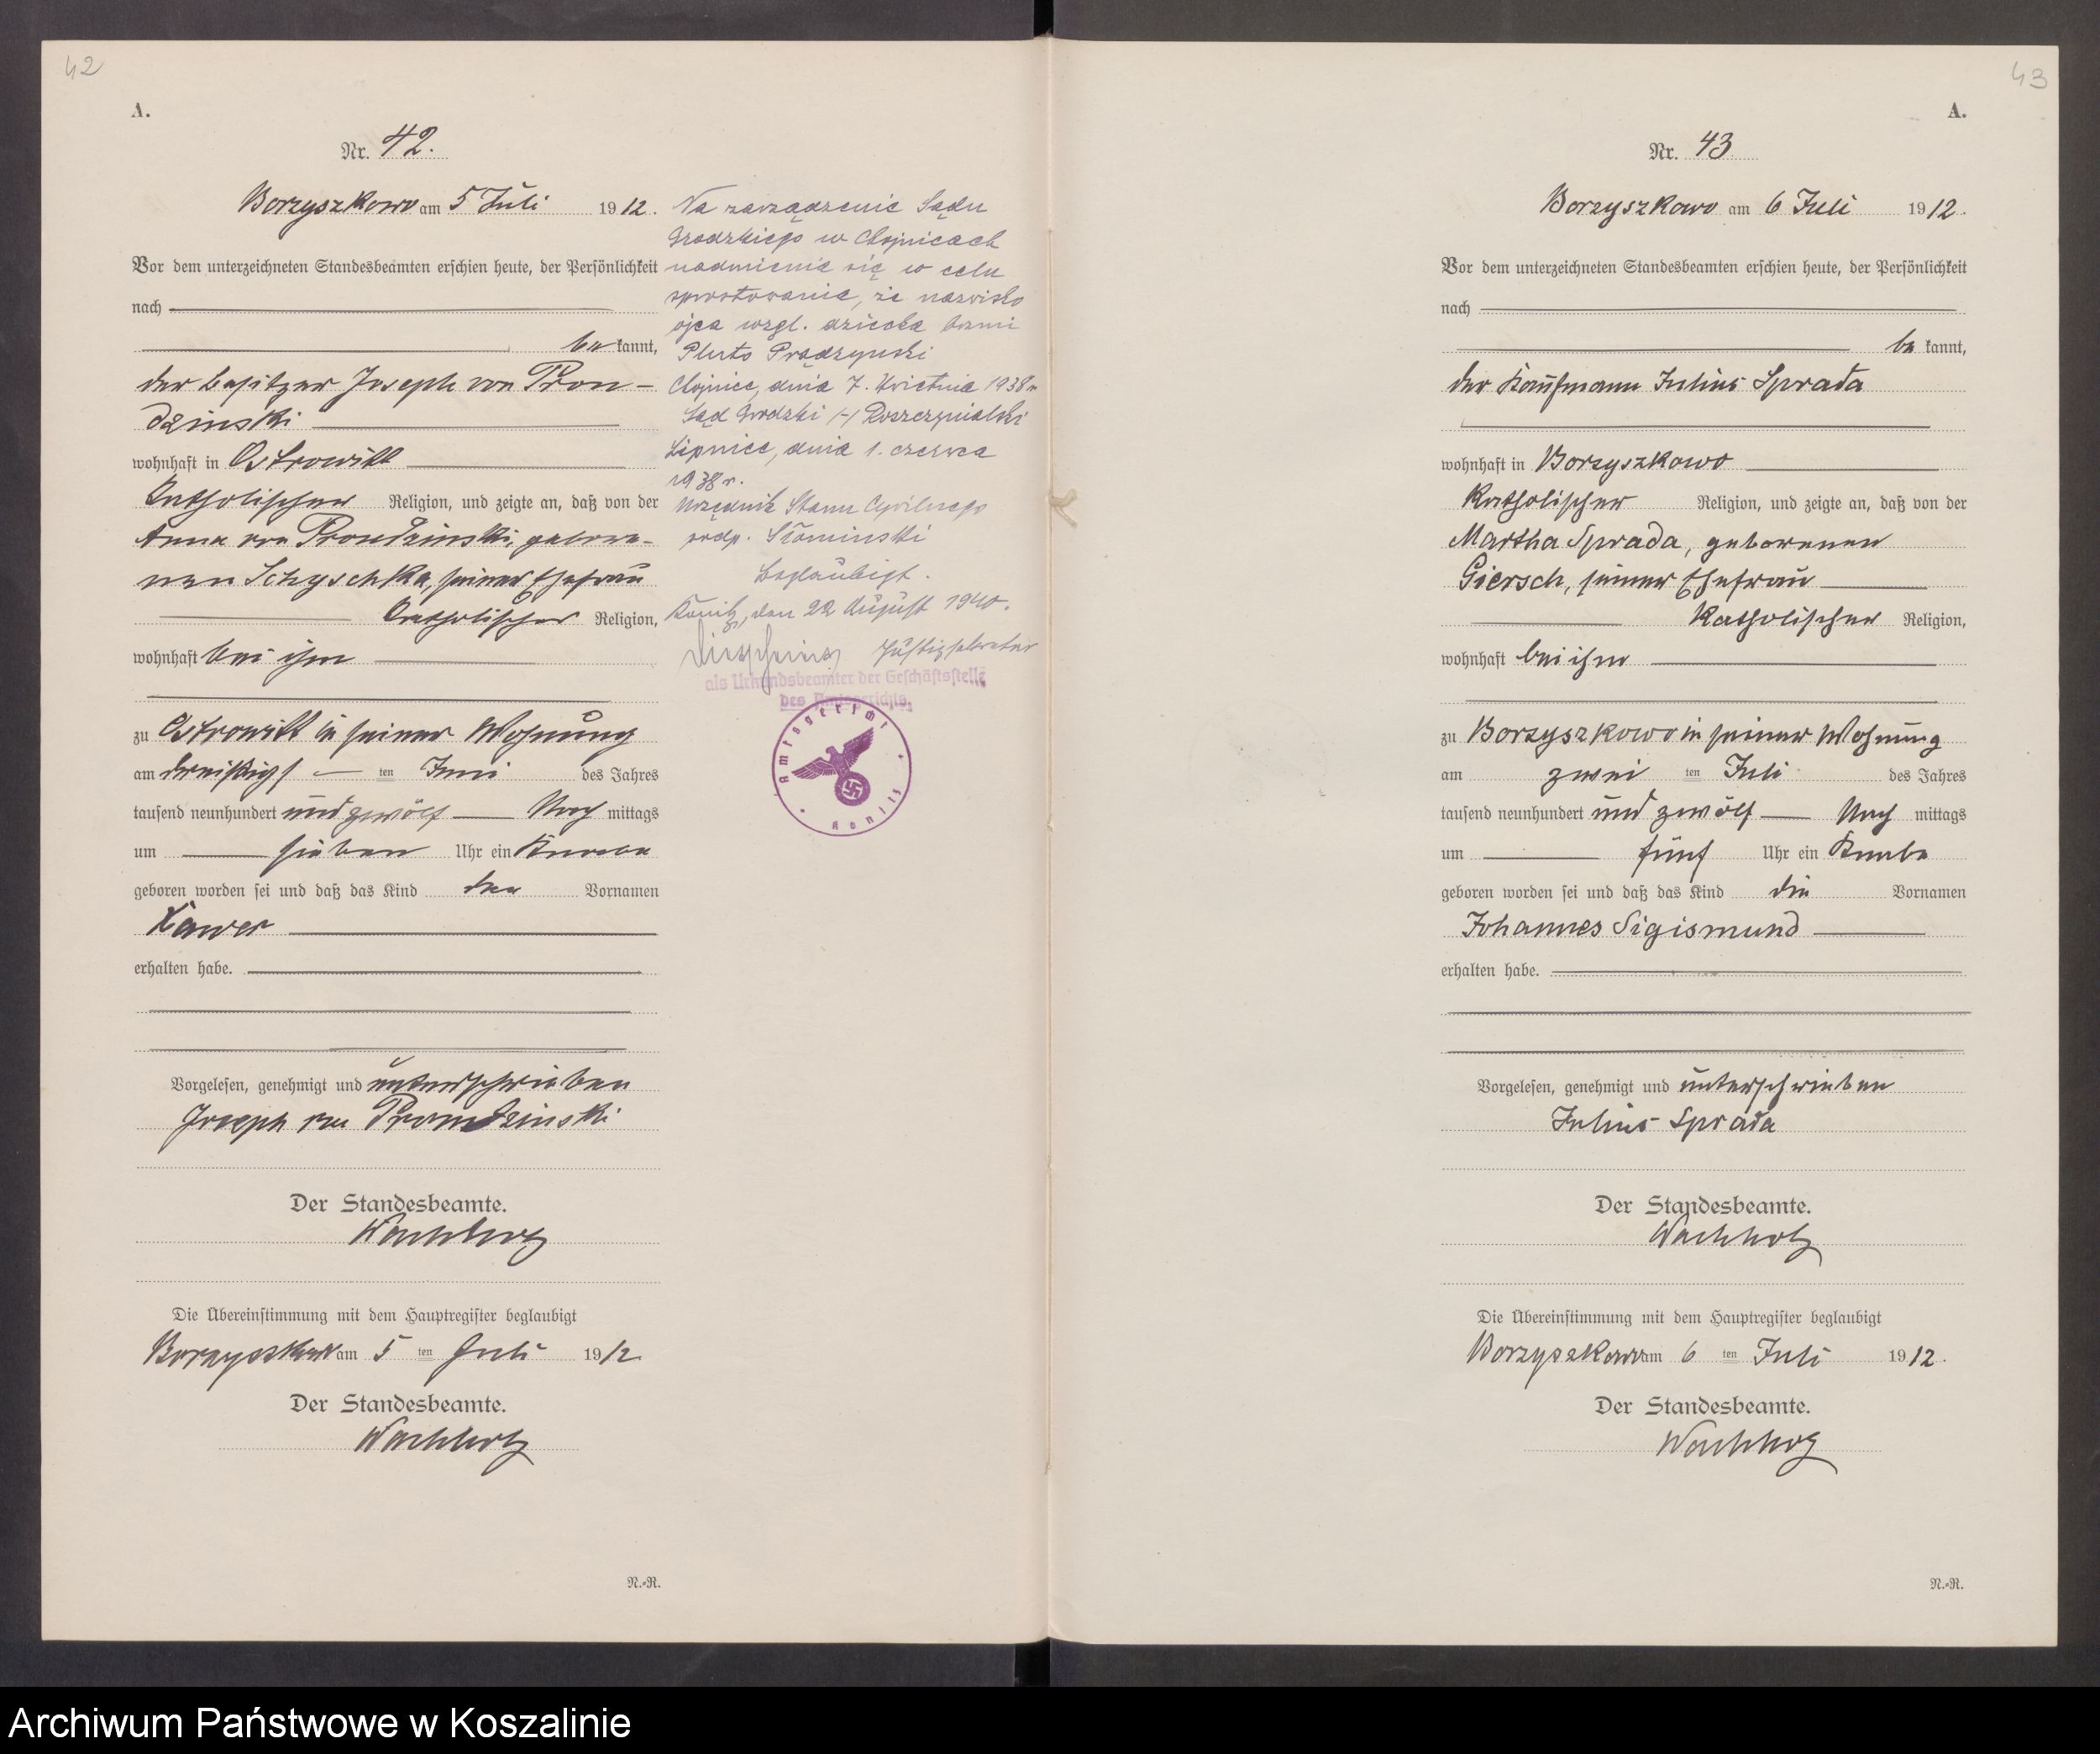 42
A.
Nr. 42.
Borzyszkowo am 5 Juli 1912.
Vor dem unterzeichneten Standesbeamten erschien heute, der Persönlichkeit
nach
be kannt,
der Besitzer Joseph von Pron-
dzinski
wohnhaft in Ostrowitt
katholischer Religion, und zeigte an, daß von der
Anna von Prondzinski, gebore-
nen Schyschka, seiner Ehefrau
katholischer Religion,
wohnhaft bei ihm
zu Ostrowitt in seiner Wohnung
am dreißigs ten Juni des Jahres
tausend neunhundert und zwölf Nach mittags
um sieben Uhr ein Knabe
geboren worden sei und daß das Kind den Vornamen
Xaver
erhalten habe.
Vorgelesen, genehmigt und unterschrieben
Joseph von Prondzinski
Der Standesbeamte.
Wachholz
Die Übereinstimmung mit dem Hauptregister beglaubigt
Borzyszkowo am 5 ten Juli 1912
Der Standesbeamte.
Wachholz
N.-R.
Na zarządzenie Sądu
Grodzkiego w Chojnicach
nadmienia się w celu
sprostowania, że nazwisko
ojca wzgl. dziecka brzmi
Pluto Prądzyński
Chojnice, dnia 7. Kwietnia 1938 r
Sąd Grodzki (-) Roszczynialski
Lipnica, dnia 1. czerwca
1938 r.
Urzędnik Stanu Cywilnego
podp. Słomiński
Beglaubigt.
Konitz, den 22 August 1940.
Justizsekretär
als Urkundsbeamter der Geschäftsstelle
des Amtsgerichts.
Amtsgericht Konitz
43
A.
Nr. 43
Borzyszkowo am 6 Juli 1912.
Vor dem unterzeichneten Standesbeamten erschien heute, der Persönlichkeit
nach
be kannt,
der Kaufmann Julius Sprada
wohnhaft in Borzyszkowo
katholischer Religion, und zeigte an, daß von der
Martha Sprada, geborenen
Giersch, seiner Ehefrau
katholischer Religion,
wohnhaft bei ihm
zu Borzyszkowo in seiner Wohnung
am zwei ten Juli des Jahres
tausend neunhundert und zwölf Nach mittags
um fünf Uhr ein Knabe
geboren worden sei und daß das Kind die Vornamen
Johannes Sigismund
erhalten habe.
Vorgelesen, genehmigt und unterschrieben
Julius Sprada
Der Standesbeamte.
Wachholz
Die Übereinstimmung mit dem Hauptregister beglaubigt
Borzyszkowo am 6 ten Juli 1912.
Der Standesbeamte.
Wachholz
N.-R.
Archiwum Państwowe w Koszalinie